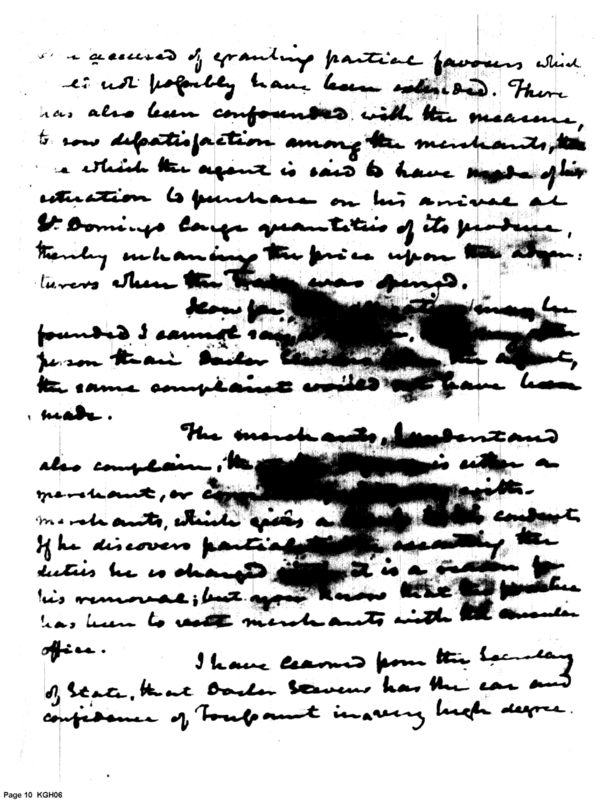 accused of granting partial favours which
not possibly have been extended. There
has also been confounded with the measure,
to sow dissatisfaction among the merchants, the
which the agent is said to have made of his
situation to purchase on his arrival at
St. Domingo large quantities of its produce,
thereby enhancing the price upon the adven:
turers when the trade was opened.
How far may be
founded I cannot say,
person than Doctor Stevens the agent,
the same complaint would not have been
made.
The merchants, I understand
also complain, the is either a
merchant, or with
merchants, which gives a conduct.
If he discovers in executing the
duties he is charged it is a reason for
his removal; but you know that the practice
has been to vest merchants with the consular
office.
I have learned from the Secretary
of State, that Doctor Stevens has the ear and
confidence of Toussaint in a very high degree.
Page 10 KGH06